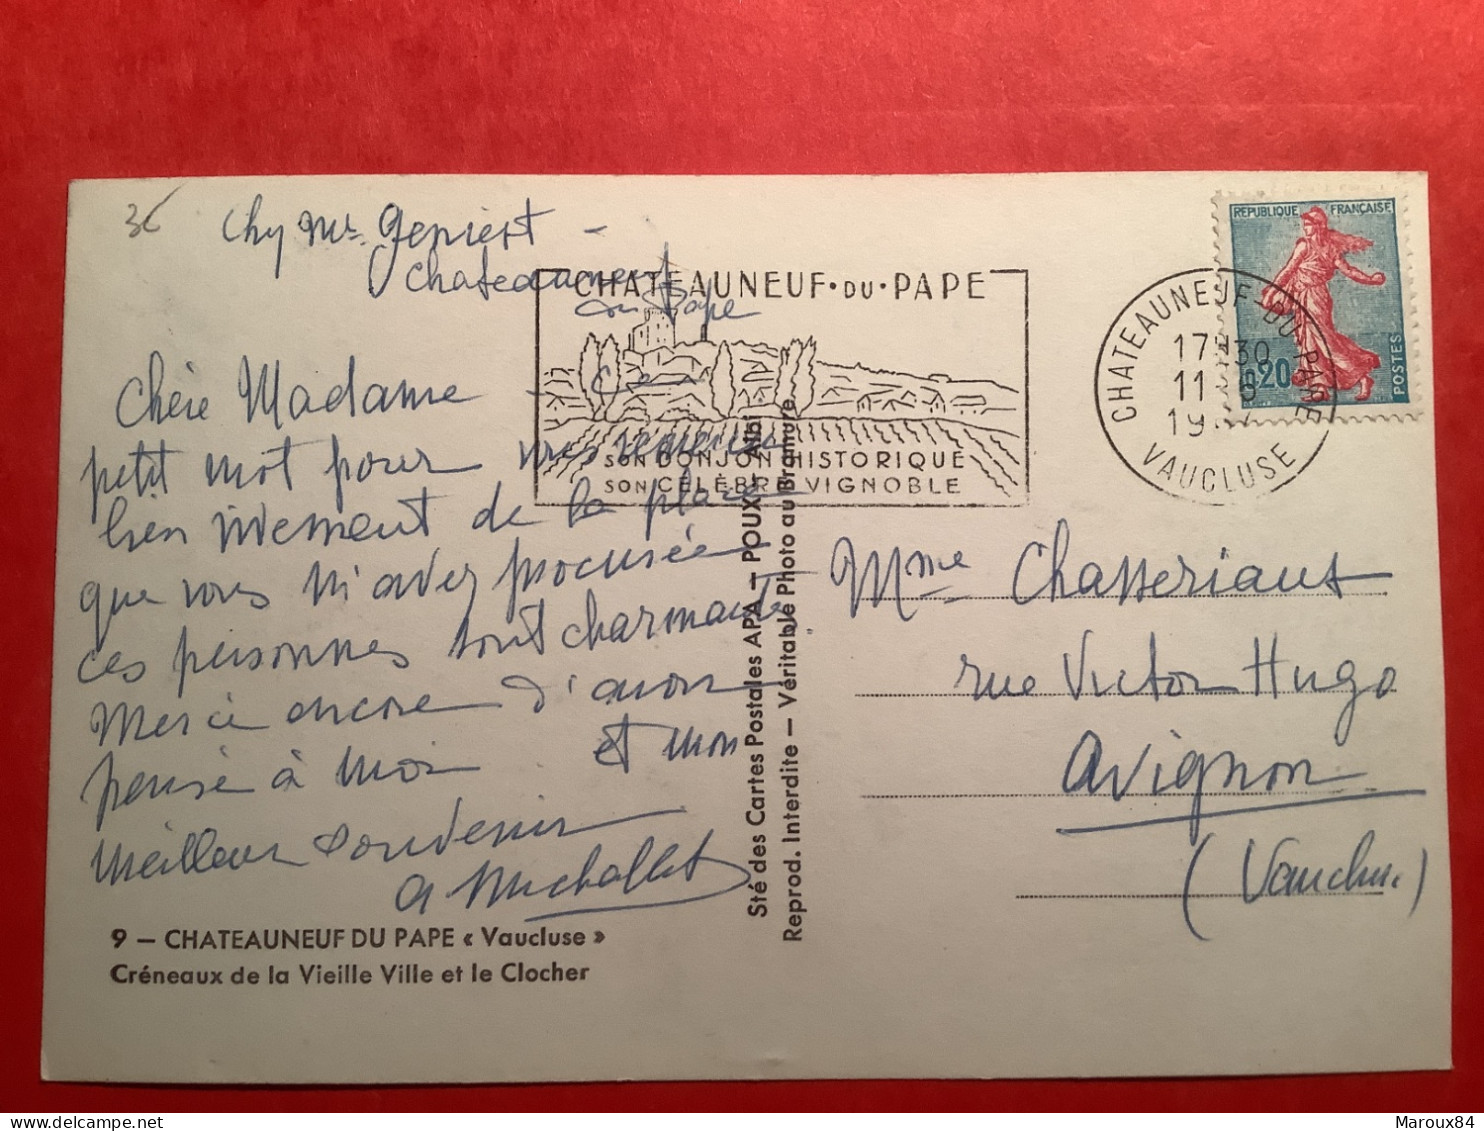 36
Chy Mr. Geniest -
Chateauneuf
du Pape
Chère Madame - Ce
petit mot pour vous remercier
bien vivement de la place
que vous m'avez procurée
ces personnes sont charmantes
Merci encore d'avoir
pensé à moi et mon
meilleur souvenir
a Michallet
9 — CHATEAUNEUF DU PAPE « Vaucluse »
Créneaux de la Vieille Ville et le Clocher
Sté des Cartes Postales APA — POUX - Albi
Reprod. Interdite — Véritable Photo au Bromure
CHATEAUNEUF·DU·PAPE
SON DONJON HISTORIQUE
SON CÉLÈBRE VIGNOBLE
CHATEAUNEUF-DU-PAPE
17H30
11-9
19
VAUCLUSE
REPUBLIQUE FRANÇAISE
0,20
POSTES
Mme Chasseriaux
rue Victor Hugo
Avignon
(Vaucluse)
Maroux84